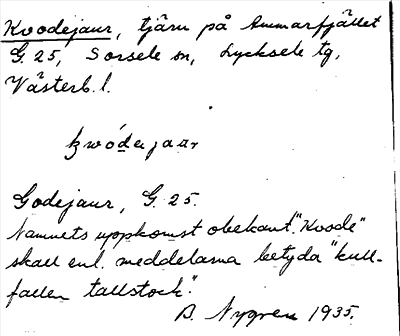 Kvodejaur, tjärn på Ammarfjället
G. 25, Sorsele sn, Lycksele tg,
Västerb. l.
kwóde jaar
Godejaur, G. 25.
Namnets uppkomst obekant. "Kvode"
skall enl. meddelarna betyda "kull-
fallen tallstock".
B. Nygren 1935.